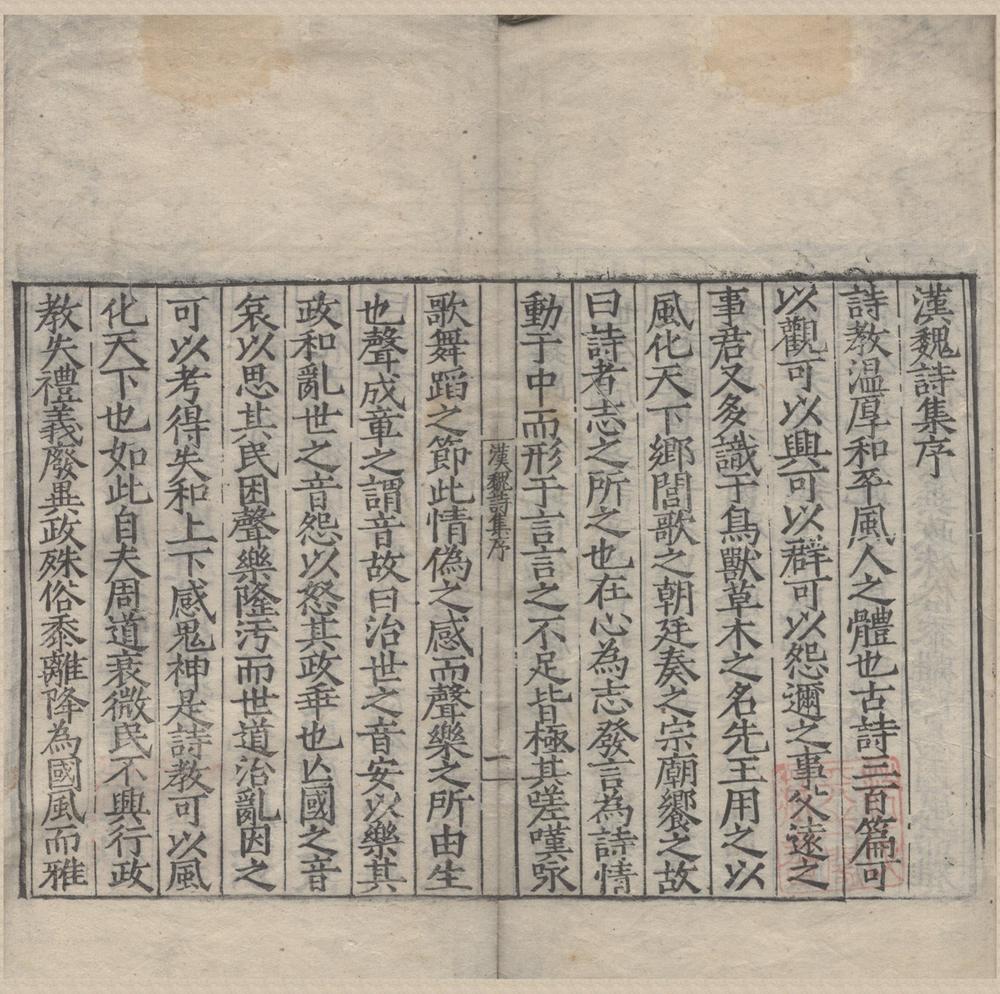 漢魏詩集序
詩教温厚和平風人之體也古詩三百篇可
以觀可以興可以群可以怨邇之事父遠之
事君又多識于鳥獸草木之名先王用之以
風化天下鄉閭歌之朝廷奏之宗廟饗之故
曰詩者志之所之也在心為志發言為詩情
動于中而形于言言之不足皆極其嗟嘆咏
漢魏詩集序
一
歌舞蹈之節此情偽之感而聲樂之所由生
也聲成章之謂音故曰治世之音安以樂其
政和亂世之音怨以怒其政乖也亾國之音
哀以思其民困聲樂隆污而世道治亂因之
可以考得失和上下感鬼神是詩教可以風
化天下也如此自夫周道衰微民不興行政
教失禮義廢異政殊俗黍離降為國風而雅